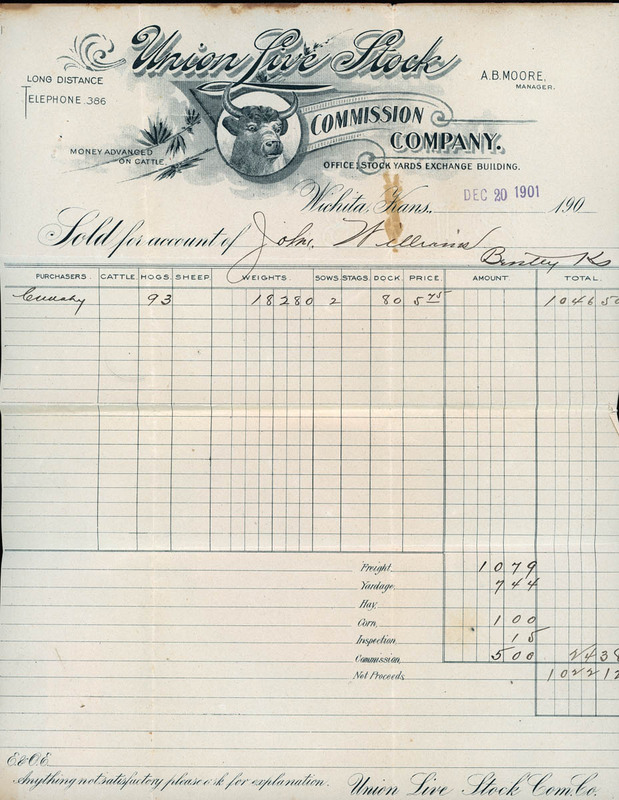 Union Live Stock
LONG DISTANCE
TELEPHONE 386
A.B. MOORE,
MANAGER.
COMMISSION
COMPANY.
MONEY ADVANCED
ON CATTLE.
OFFICE: STOCK YARDS EXCHANGE BUILDING.
Wichita, Kans., DEC 20 1901 190
Sold for account of John Williams
Bentley Ks
PURCHASERS CATTLE HOGS. SHEEP WEIGHTS. SOWS STAGS. DOCK. PRICE. AMOUNT. TOTAL.
Cudahy 93 18280 2 80 5 75 1046 50
Freight 10 79
Yardage, 7 44
Hay,
Corn, 1 00
Inspection, 15
Commission, 5 00 24 38
Net Proceeds, 1022 12
E.&O.E.
Anything not satisfactory please ask for explanation.
Union Live Stock Com. Co.